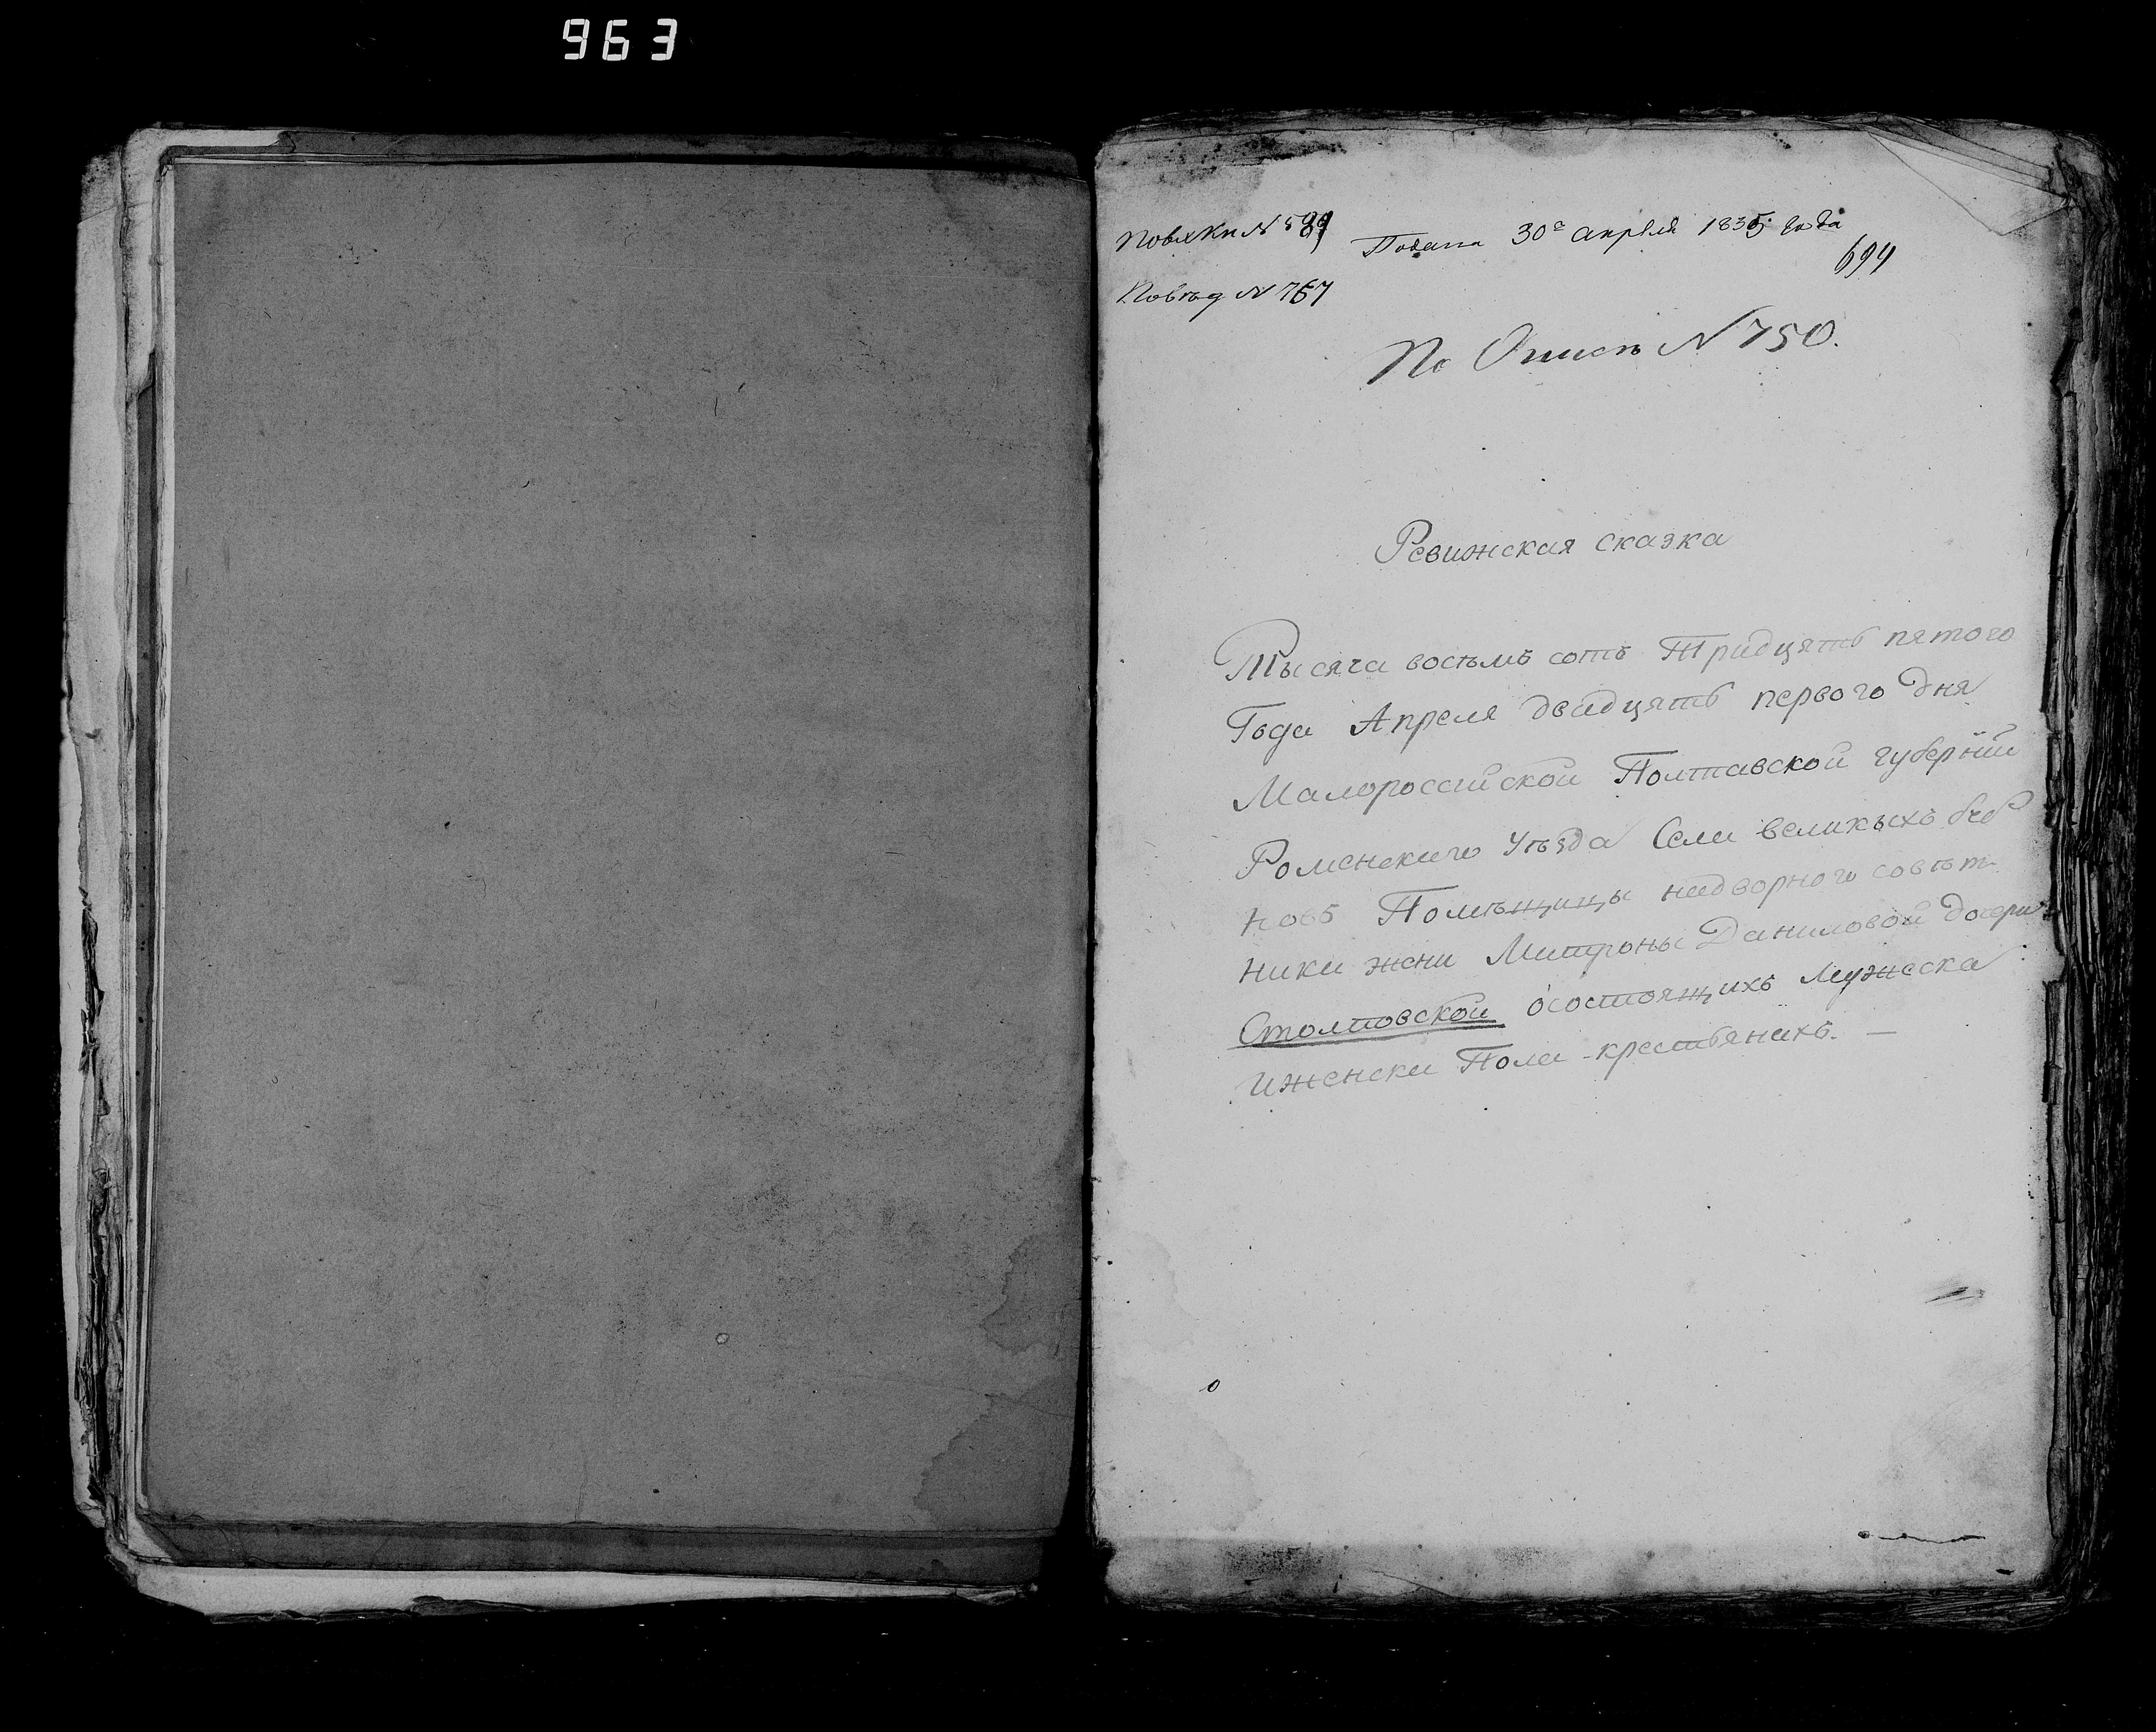 963
По вх Кн N 599
Подана 30го апреля 1835 года
694
N 767
По Описи N 750.
Ревижская сказка
Тысяча восемъ сотъ Тридцять пятого
Года Апреля двадцять первого дня
Малороссийской Полтавской губернии
Роменскаго Уѣзда Села великыхъ буб
новъ Помѣщицы надворного совѣт
ника жены Матроны Даниловой дочери
Столповской осостоящихъ Мужеска
иженска Пола крестьянахъ. —